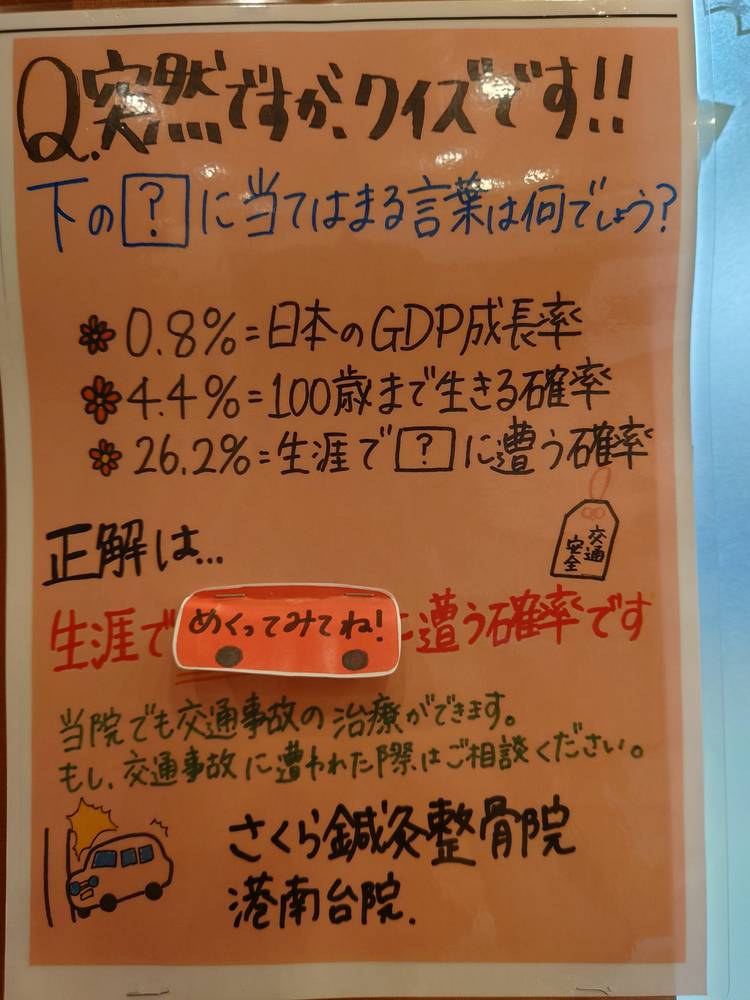 Q.突然ですが、クイズです!!
下の?に当てはまる言葉は何でしょう?
0.8%=日本のGDP成長率
4.4%=100歳まで生きる確率
26.2%=生涯で?に遭う確率
交通安全
正解は...
生涯でめくってみてね!に遭う確率です
当院でも交通事故の治療ができます。
もし、交通事故に遭われた際はご相談ください。
さくら鍼灸整骨院
港南台院.